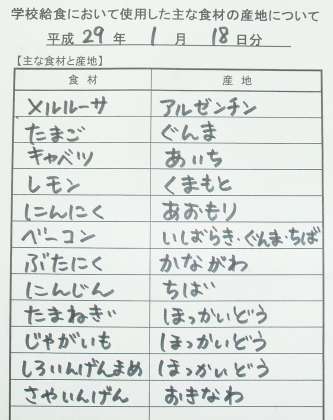 学校給食において使用した主な食材の産地について
平成 29 年 1 月 18 日分
【主な食材と産地】
食材 産地
メルルーサ アルゼンチン
たまご ぐんま
キャベツ あいち
レモン くまもと
にんにく あおもり
ベーコン いしむらき・ぐんま・ちば
ぶたにく かながわ
にんじん ちば
たまねぎ ほっかいどう
じゃがいも ほっかいどう
しろいんげんまめ ほっかいどう
さやいんげん おきなわ